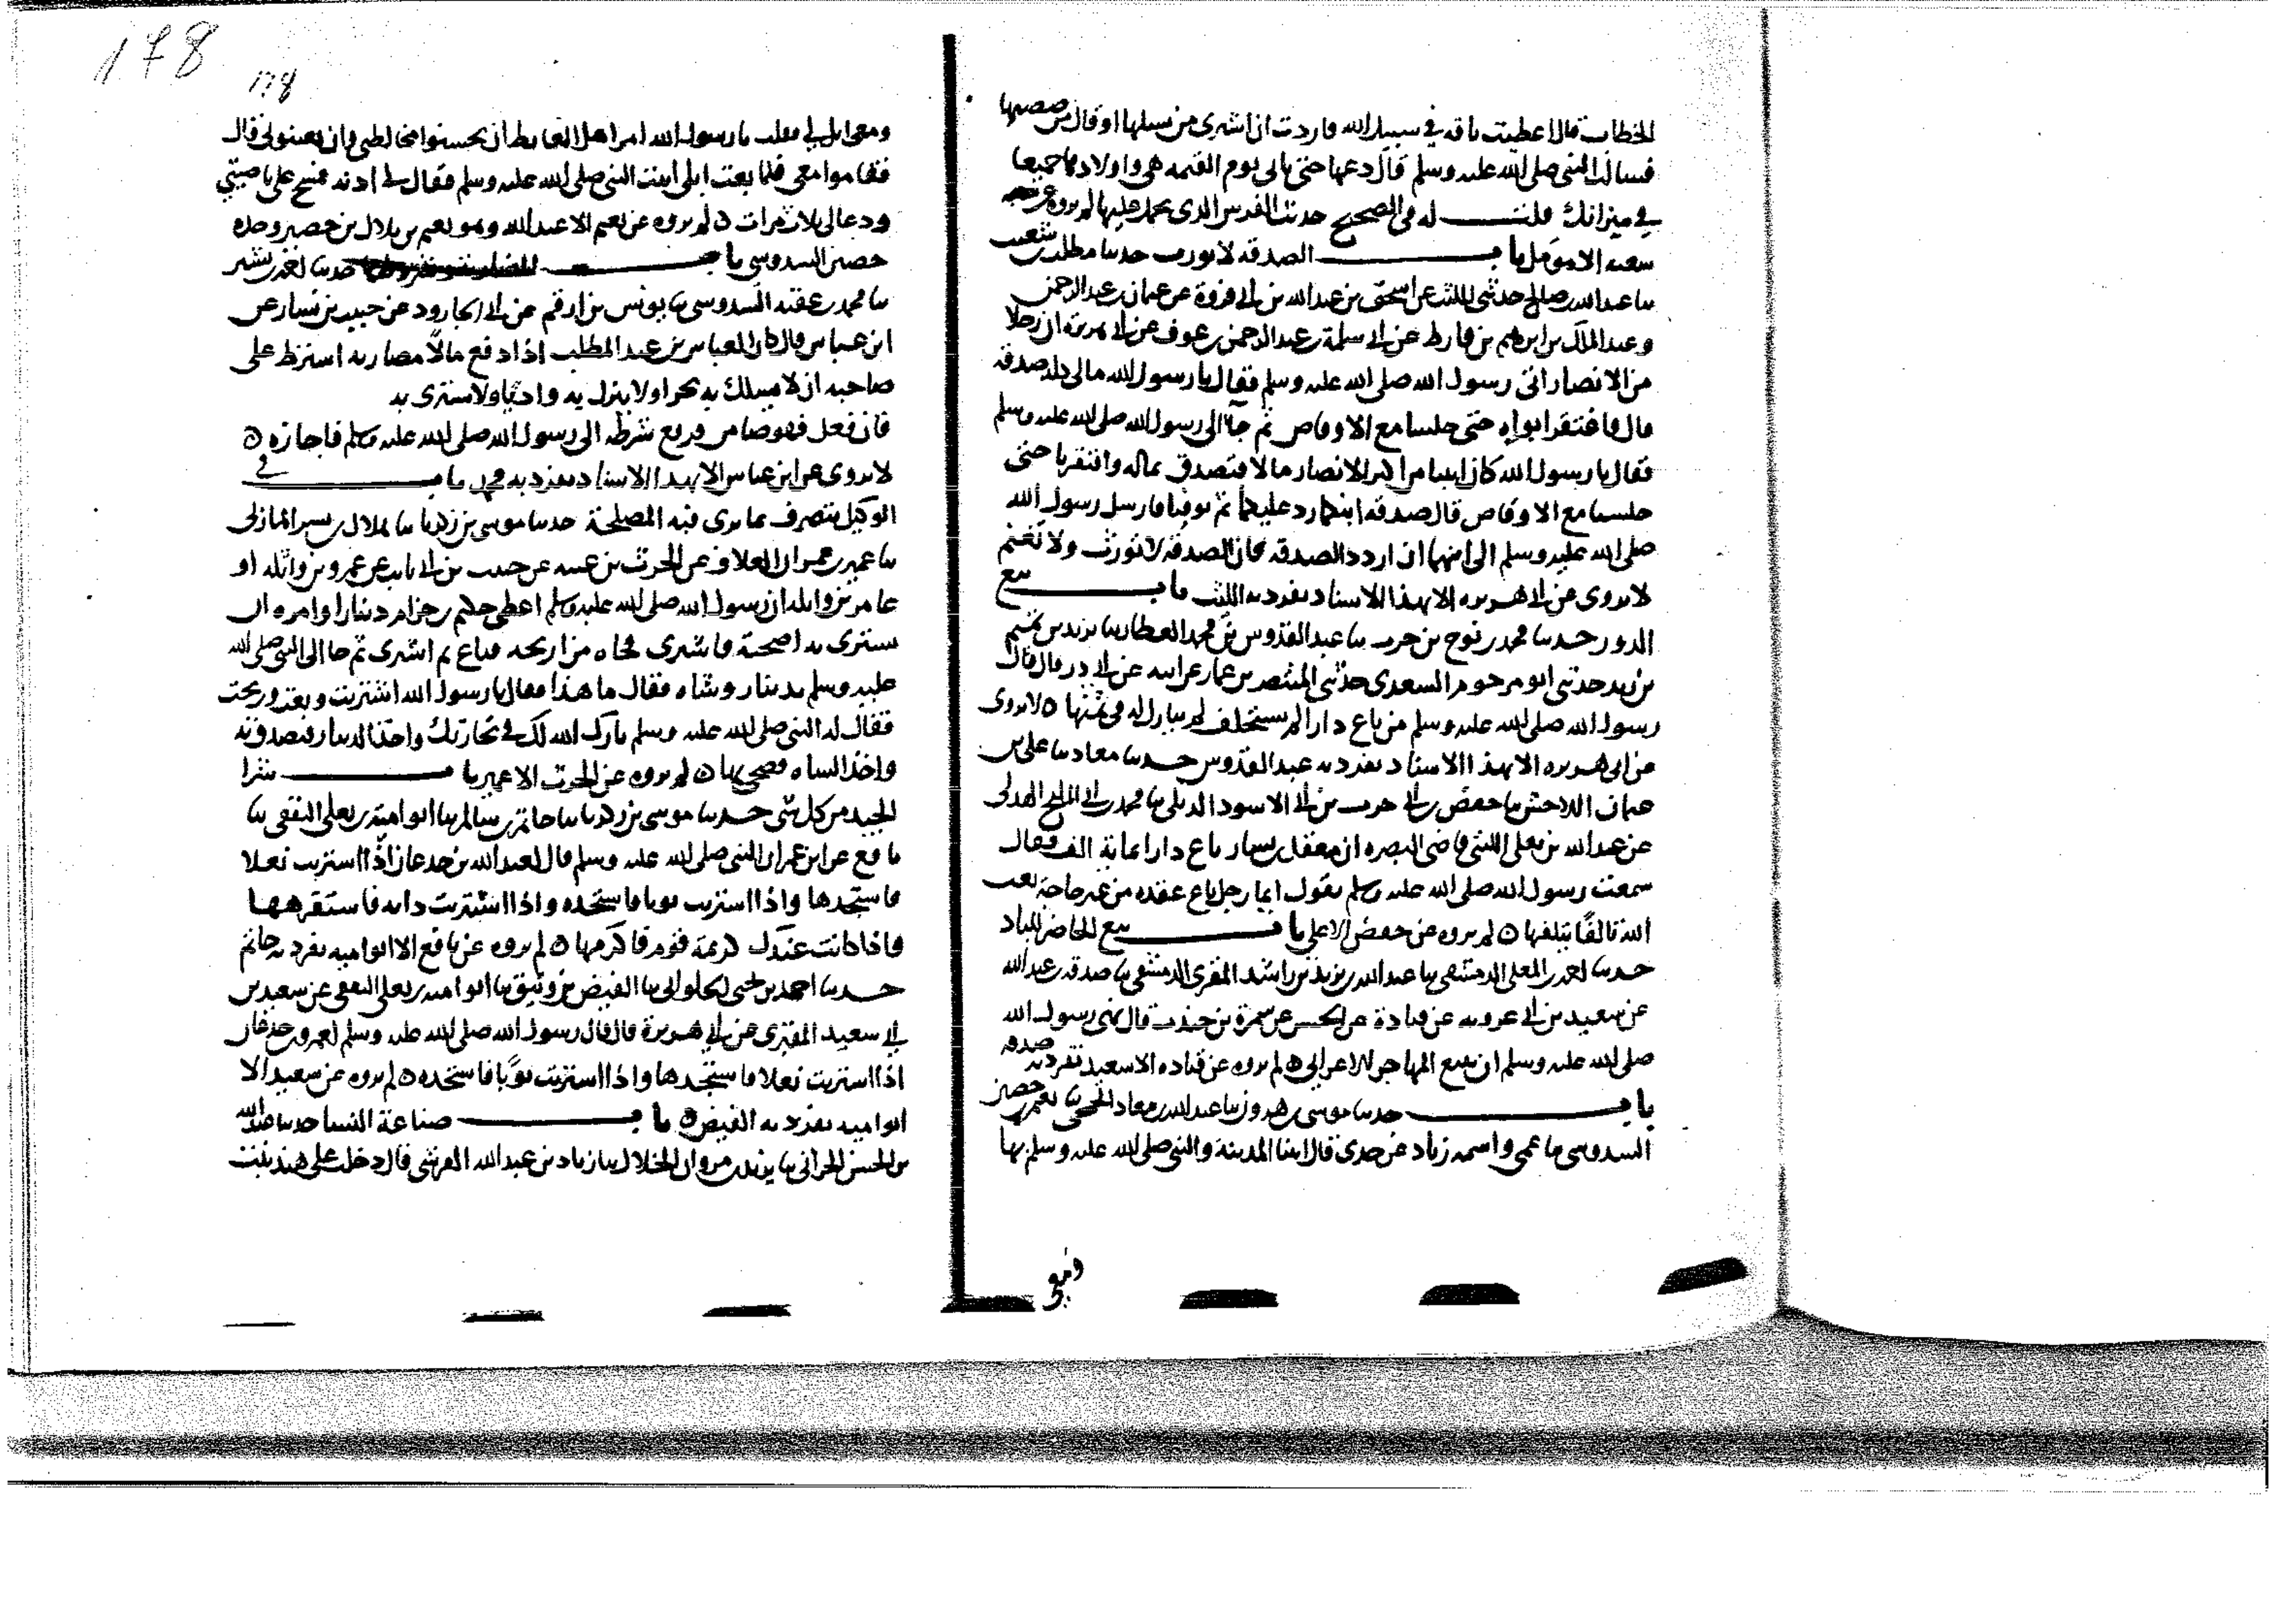 الخطاب قال اعطيت ناقة في سبيل الله فاردت ان اشترى من نسلها او قال من ضئضئها
فسالت النبي صلى الله عليه وسلم قال دعها حتى تاتى يوم القيمه هى واولادها جميعا
في ميزانك قلت له في الصحيح حديث الفرس الذى حمل عليها لم يروه عن
سعيد الا مومل باب الصدقة لا تورث حدثنا مطلب بن شعيب
ثنا عبدالله بن صالح حدثنى الليث عن اسحق بن عبدالله بن ابي فروة عن عثمان بن عبدالرحمن
وعبد الملك بن ابرهيم بن قارظ عن ابي سلمة بن عبدالرحمن بن عوف عن ابي هريرة ان رجلا
من الانصار اتى رسول الله صلى الله عليه وسلم فقال يا رسول الله مالى كله صدقة
قال فافتقر ابواه حتى جلسا مع الاوفاض ثم جاآ الى رسول الله صلى الله عليه وسلم
فقال يا رسول الله كان ابننا من اكثر الانصار مالا فتصدق بماله وافتقرنا حتى
جلسنا مع الاوفاض قال صدقة ابنكما رد عليكما ثم توفيا فارسل رسول الله
صلى الله عليه وسلم الى ابنهما ان اردد الصدقة فان الصدقة لا تورث ولا تغنم
لا يروى عن ابي هريره الا بهذا الاسناد تفرد به الليث باب بيع
الدور حدثنا محمد بن نوح بن حرب ثنا عبد القدوس بن محمد العطار ثنا يزيد بن تميم
بن زيد حدثنى ابو مرحوم السعدى حدثنى المنتصر بن عمار عن ابيه عن ابي ذر قال قال
رسول الله صلى الله عليه وسلم من باع دارا لم يستخلف لم يبارك له في ثمنها ه لا يروى
عن ابي هريره الا بهذا الاسناد تفرد به عبد القدوس حدثنا معاذ ثنا على بن
عثمان اللاحقى ثنا حفص بن ابي حرب بن ابي الاسود الديلي ثنا محمد بن ابي المليح الهذلى
عن عبدالله بن يعلى الليثى قاضى البصره ان معقل بن يسار باع دارا بماية الف فقال
سمعت رسول الله صلى الله عليه وسلم يقول ايما رجل باع عقده من غير حاجة بعث
الله تالفا يتلفها ه لم يروه عن حفص الا على باب بيع الحاضر للباد
حدثنا احمد بن المعلى الدمشقى ثنا عبدالله بن يزيد بن راشد المقرى الدمشقى ثنا صدقة بن عبدالله
عن سعيد بن ابي عروبه عن قتادة عن الحسن عن سمرة بن جندب قال نهى رسول الله
صلى الله عليه وسلم ان يبيع المهاجر للاعرابي ه لم يروه عن قتاده الا سعيد تفرد به صدقه
باب حدثنا موسى بن هرون ثنا عبدالله بن معاذ ثنا نعيم بن حصين
السدوسى ثنا عمى واسمه زياد عن جدى قال اتينا المدينة والنبي صلى الله عليه وسلم بها
ومعى
178
178
ومعى ابل لي فقلت يا رسول الله امر اهل الغايط ان يحسنوا مخالطتي وان يعينوني قال
فقاموا معى فلما بعت ابلى اتيت النبي صلى الله عليه وسلم فقال لي ادنه فمسح على ناصيتي
ودعا لي ثلاث مرات ه لم يروه عن نعيم الا عبدالله وهو نعيم بن بلال بن حصين وجده
حصين السدوسى باب حدثنا احمد بن بشير
ثنا محمد بن عقبة السدوسى ثنا يونس بن ارقم عن ابي الجارود عن حبيب بن يسار عن
ابن عباس قال كان العباس بن عبد المطلب اذا دفع مالا مضاربة اشترط على
صاحبه ان لا يسلك به بحرا ولا ينزل به واديا ولا يشترى به
فان فعل فهو ضامن فرفع شرطه الى رسول الله صلى الله عليه وسلم فاجازه ه
لا يروى عن ابن عباس الا بهذا الاسناد تفرد به محمد باب في
الوكيل يتصرف بما يرى فيه المصلحة حدثنا موسى بن زكريا ثنا بلال بن بشير المازنى
ثنا عمير بن عمران العلاف عن الحرث بن عيينه عن حبيب بن ابي ثابت عن عمرو بن واثله او
عامر بن واثله ان رسول الله صلى الله عليه وسلم اعطى حكيم بن حزام دينارا وامره ان
يشترى به اضحية فاشترى فجاه من اربحه فباع ثم اشترى ثم جا الى النبي صلى الله
عليه وسلم بدينار وشاه فقال ما هذا فقال يا رسول الله اشتريت وبعت وربحت
فقال له النبي صلى الله عليه وسلم بارك الله لك في تجارتك واخذ الدينار فتصدق به
واخذ الشاه فضحى بها ه لم يروه عن الحرث الا عمير باب شرا
الجيد من كل شى حدثنا موسى بن زكريا ثنا حاتم بن سالم ثنا ابو امية بن يعلى الثقفى ثنا
نافع عن ابن عمر ان النبي صلى الله عليه وسلم قال لعبد الله بن جدعان اذا اشتريت نعلا
فاستجدها واذا اشتريت ثوبا فاستجده واذا اشتريت دابه فاستفرهها
واذا كانت عندك كريمة قوم فاكرمها ه لم يروه عن نافع الا ابو اميه تفرد به حاتم
حدثنا احمد بن يحيى الحلوانى ثنا الفيض بن وثيق ثنا ابو اميه بن يعلى الثقفى عن سعيد بن
ابي سعيد المقبرى عن ابي هريرة قال قال رسول الله صلى الله عليه وسلم لعمرو بن جدعان
اذا اشتريت نعلا فاستجدها واذا اشتريت ثوبا فاستجده ه لم يروه عن سعيد الا
ابو اميه تفرد به الفيض ه باب صناعة النسا حدثنا عبدالله
بن الحسن الحرانى ثنا يزيد بن مروان الخلال ثنا زياد بن عبدالله القرشى قال دخلت على هند بنت